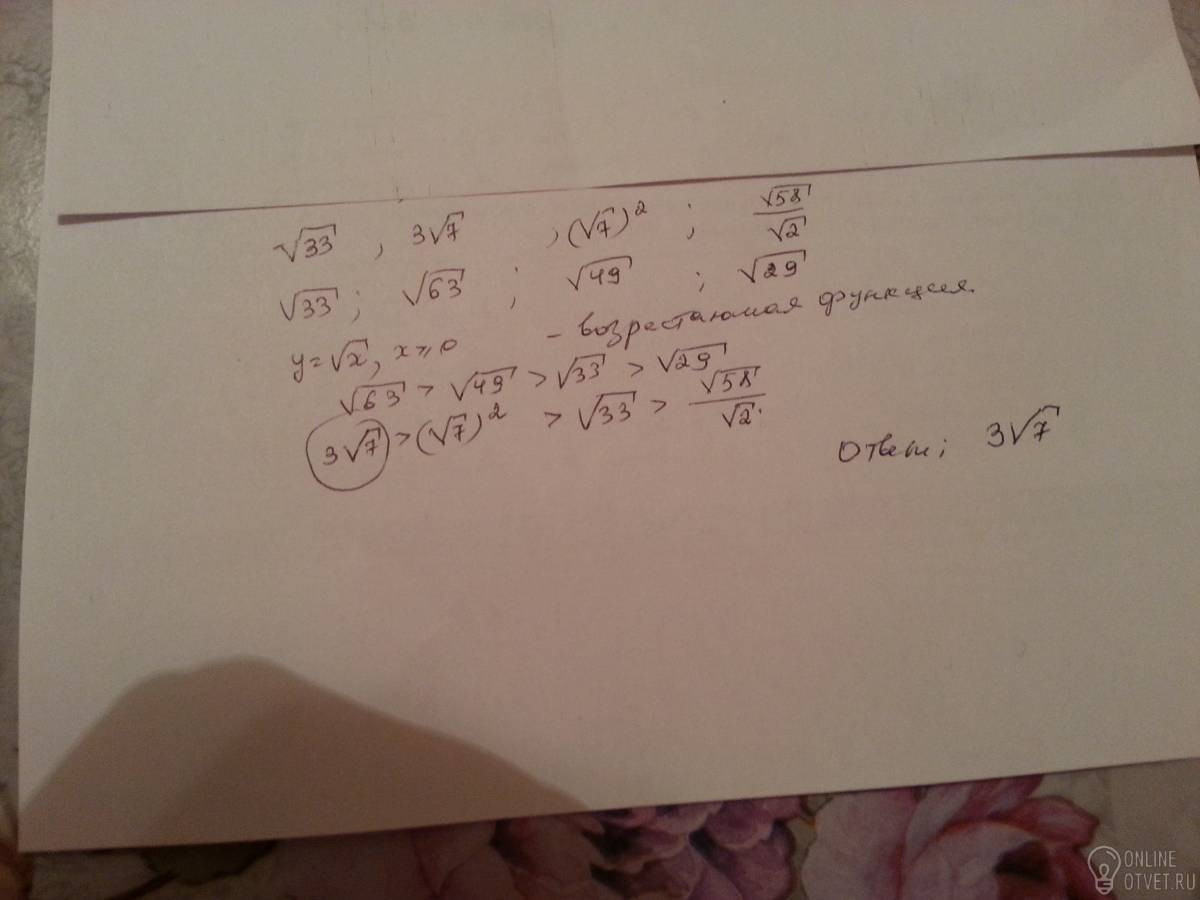 √33 , 3√7 ; (√7)² ; √58/√2
√33 ; √63 ; √49 ; √29
y=√x, x≥0 – возрастающая функция.
√63 > √49 > √33 > √29
3√7 > (√7)² > √33 > √58/√2.
Ответ; 3√7
ONLINE
OTVET.RU